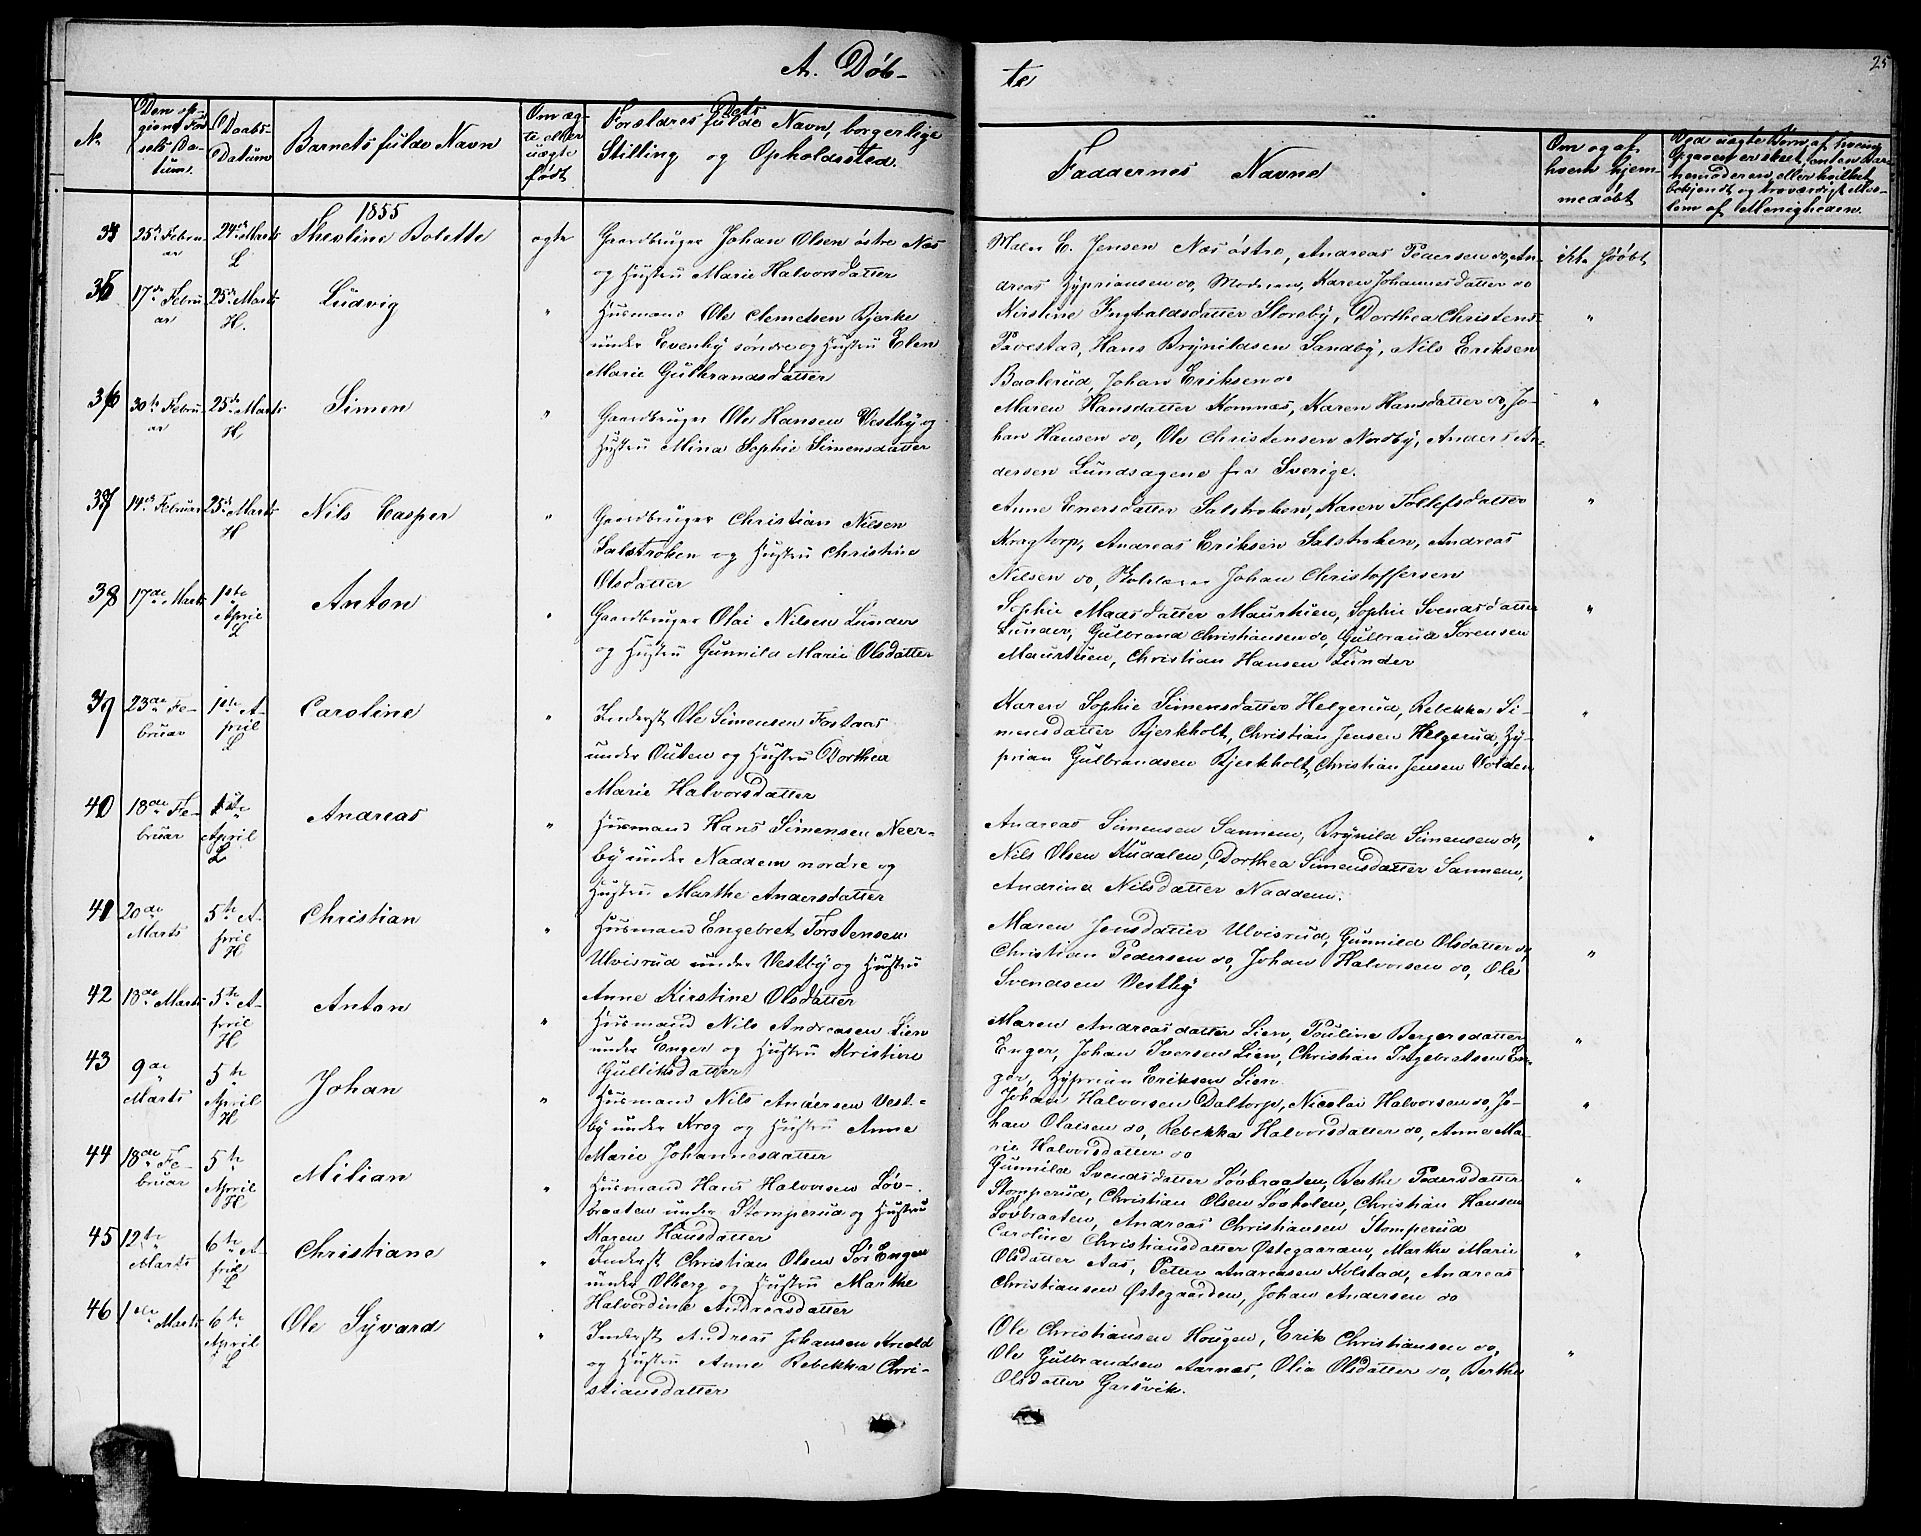 A. Døb-
te
25
No
Den op-
givne Fød-
sels Da-
tum.
Daabs-
Datum
Barnets fulde Navn
Om æg-
te eller
uægte
født
Dets
Forældres fulde Navn, borgerlige
Stilling og Opholdssted.
Faddernes Navne
Om og af
hvem hjem-
medøbt
1855
34
25de Febru-
ar
24de Marts
L
Theoline Bolette
ægte
Gaardbruger Johan Olsen østre Næs
og Hustru Marie Halvorsdatter
Maler E. Jensen Næs østre, Andreas Pedersen do, An-
dreas Zypriansen do, Moderen, Karen Johannesdatter do
ikke hjdøbt
35
17de Febru
ar
25de Marts
H.
Ludvig
"
Husmand Ole Clemetsen Bjerke
under Evenby søndre og Hustru Elen
Marie Gulbrandsdatter
Kirstine Ingvaldsdatter Storeby, Dorthea Christens-
Tavestad, Hans Brynildsen Sandby, Nils Eriksen
Baalerud, Johan Eriksen do
"
36
30te Febru
ar
25de Marts
H
Simen
"
Gaardbruger Ole Hansen Vestby og
Hustru Mina Sophie Simensdatter
Maren Hansdatter Komnæs, Karen Hansdatter do, Jo-
han Hansen do, Ole Christensen Nordby, Anders An-
dersen Lundsagene fra Sverige.
"
37
14de Februar
25de Marts
H
Nils Casper
"
Gaardbruger Christian Nielsen
Salstrøken og Hustru Christine
Olsdatter
Anne Enersdatter Salstroken, Karen Tollefsdatter
Kragtorp, Andreas Eriksen Salstroken, Andreas
Nilsen do, Johan Christoffersen
"
38
17de Marts
1ste
April
L
Anton
"
Gaardbruger Olai Nilsen Lunder
og Hustru Gunnild Marie Olsdatter
Sophie Maasdatter Maurtuen, Sophie Svendsdatter
Lunder, Gulbrand Christiansen do, Gulbrand Sorensen
Maurtuen, Christian Hansen Lunder
"
39
23de Fe-
bruar
1ste A-
pril
L
Caroline
"
Inderst Ole Simensen Fostaas
under Outen og Hustru Dorthea
Marie Halvorsdatter
Karen Sophie Simensdatter Helgerud, Rebekka Si-
mensdatter Bjerkholt, Christian Jensen Helgerud, Zy-
prian Gulbrandsen Bjerkholt, Christian Jensen Volden
"
40
18de Fe-
bruar
1ste
April
L
Andreas
"
Husmand Hans Simensen Neer-
by under Naddem nordre og
Hustru Marthe Andersdatter
Andreas Simensen Sannem, Brynild Simensen do,
Nils Olsen Kudalen, Dorthea Simensdatter Sannem,
Andrine Nilsdatter Naddem.
"
41
20de
Marts
5te A-
pril
H
Christian
"
Husmand Engebret Torstensen
Ulvisrud under Vestby og Hustru
Anne Kirstine Olsdatter
Maren Jensdatter Ulvisrud, Gunnild Olsdatter do,
Christian Pedersen do, Johan Halvorsen do, Ole
Svendsen Vestby
"
42
18de Marts
5te A-
pril
H
Anton
"
Husmand Nils Andreasen Lien
under Enger og Hustru Kristine
Gulliksdatter
Maren Andreasdatter Lien, Pauline Bergersdatter
Enger, Johan Iversen Lien, Christian Ingebretsen En-
ger, Zyprian Eriksen Lien
"
43
9de
Marts
5te
April
H
Johan
"
Husmand Nils Andersen Vest-
by under Krog og Hustru Anne
Marie Johannesdatter
Johan Halvorsen Daltorp, Nicolai Halvorsen do, Jo-
han Olaisen do, Rebekka Halvorsdatter do, Anne Ma-
rie Halvorsdatter do
"
44
18de Fe-
bruar
5te
April
H
Milian
"
Husmand Hans Halvorsen Løv-
braaten under Stomperud og Hustru
Karen Hansdatter
Gunnild Svendsdatter Løvbraaten, Berthe Pedersdatter
Stomperud, Christian Olsen Søoholen, Christian Hansen
Lovbraaten, Andreas Christiansen Stomperud
"
45
12te
Marts
6te A-
pril
L
Christiane
"
Inderst Christian Olsen Sør Engen
under Olberg og Hustru Marthe
Halvordine Andreasdatter
Caroline Christiansdatter Østegaaræn, Marthe Marie
Olsdatter Aas, Petter Andreasen Kolstad, Andreas
Christiansen Østegaarden, Johan Andersen do
"
46
1ste Marts
6te
April
L
Ole Syvard
"
Inderst Andreas Johansen Krold
og Hustru Anne Rebekka Chri-
stiansdatter
Ole Christiansen Hougen, Erik Christiansen do,
Ole Gulbrandsen Aarnæs, Olia Olsdatter do, Berthe
Olsdatter Garsvik.
"